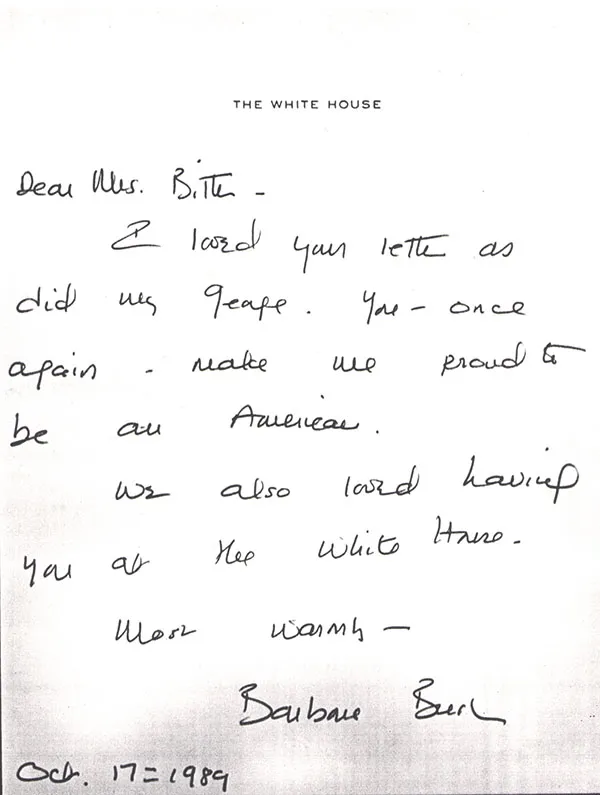 THE WHITE HOUSE
Dear Mrs. Bitth -
I loved your letter as
did my George. You - once
again - make me proud to
be an American.
We also loved having
you at the White House.
Most warmly -
Barbara Bush
Oct. 17 = 1989